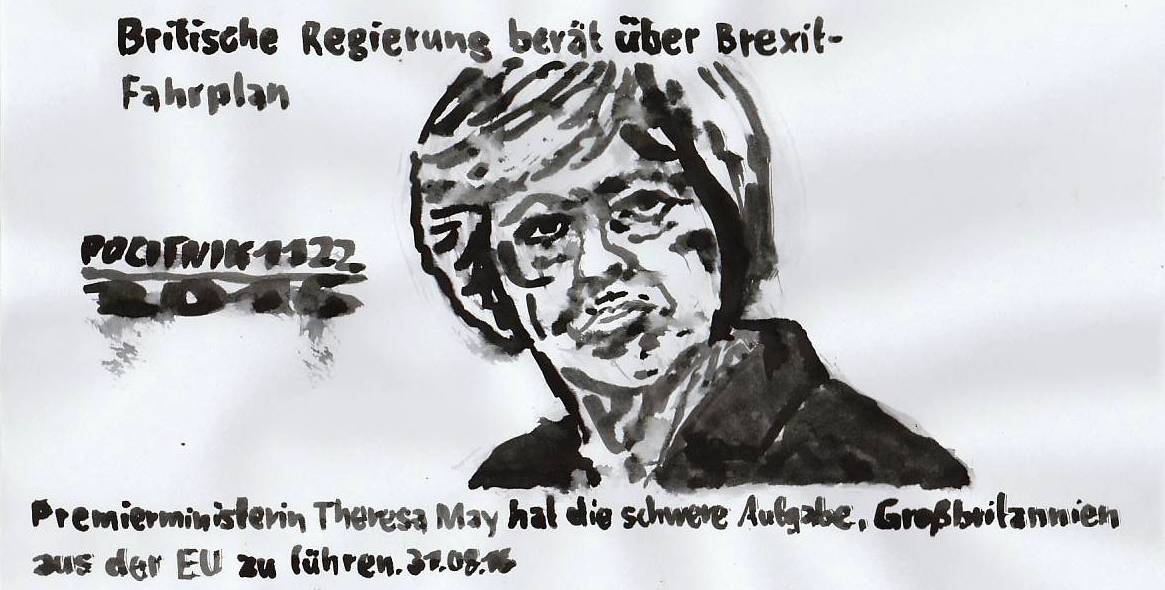 Britische Regierung berät über Brexit-
Fahrplan
POLITNIK1122
Premierministerin Theresa May hat die schwere Aufgabe, Großbritannien
aus der EU zu führen. 31.08.16